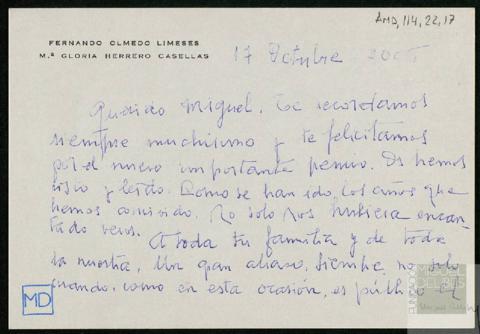 AMD, 114, 22, 17
FERNANDO OLMEDO LIMESES
Mª GLORIA HERRERO CASELLAS
17 Octubre
Querido Miguel. Te recordamos
siempre muchísimo y te felicitamos
por el nuevo importante premio. Os hemos
visto y leído. Como se han ido, los años que
hemos convivido. No solo nos hubiera encan-
tado veros.
A toda tu familia y de toda
la nuestra, Un gran abrazo. Siempre, no solo
cuando, como en esta ocasión, es público el
MD
FUNDACIÓN
DELIBES